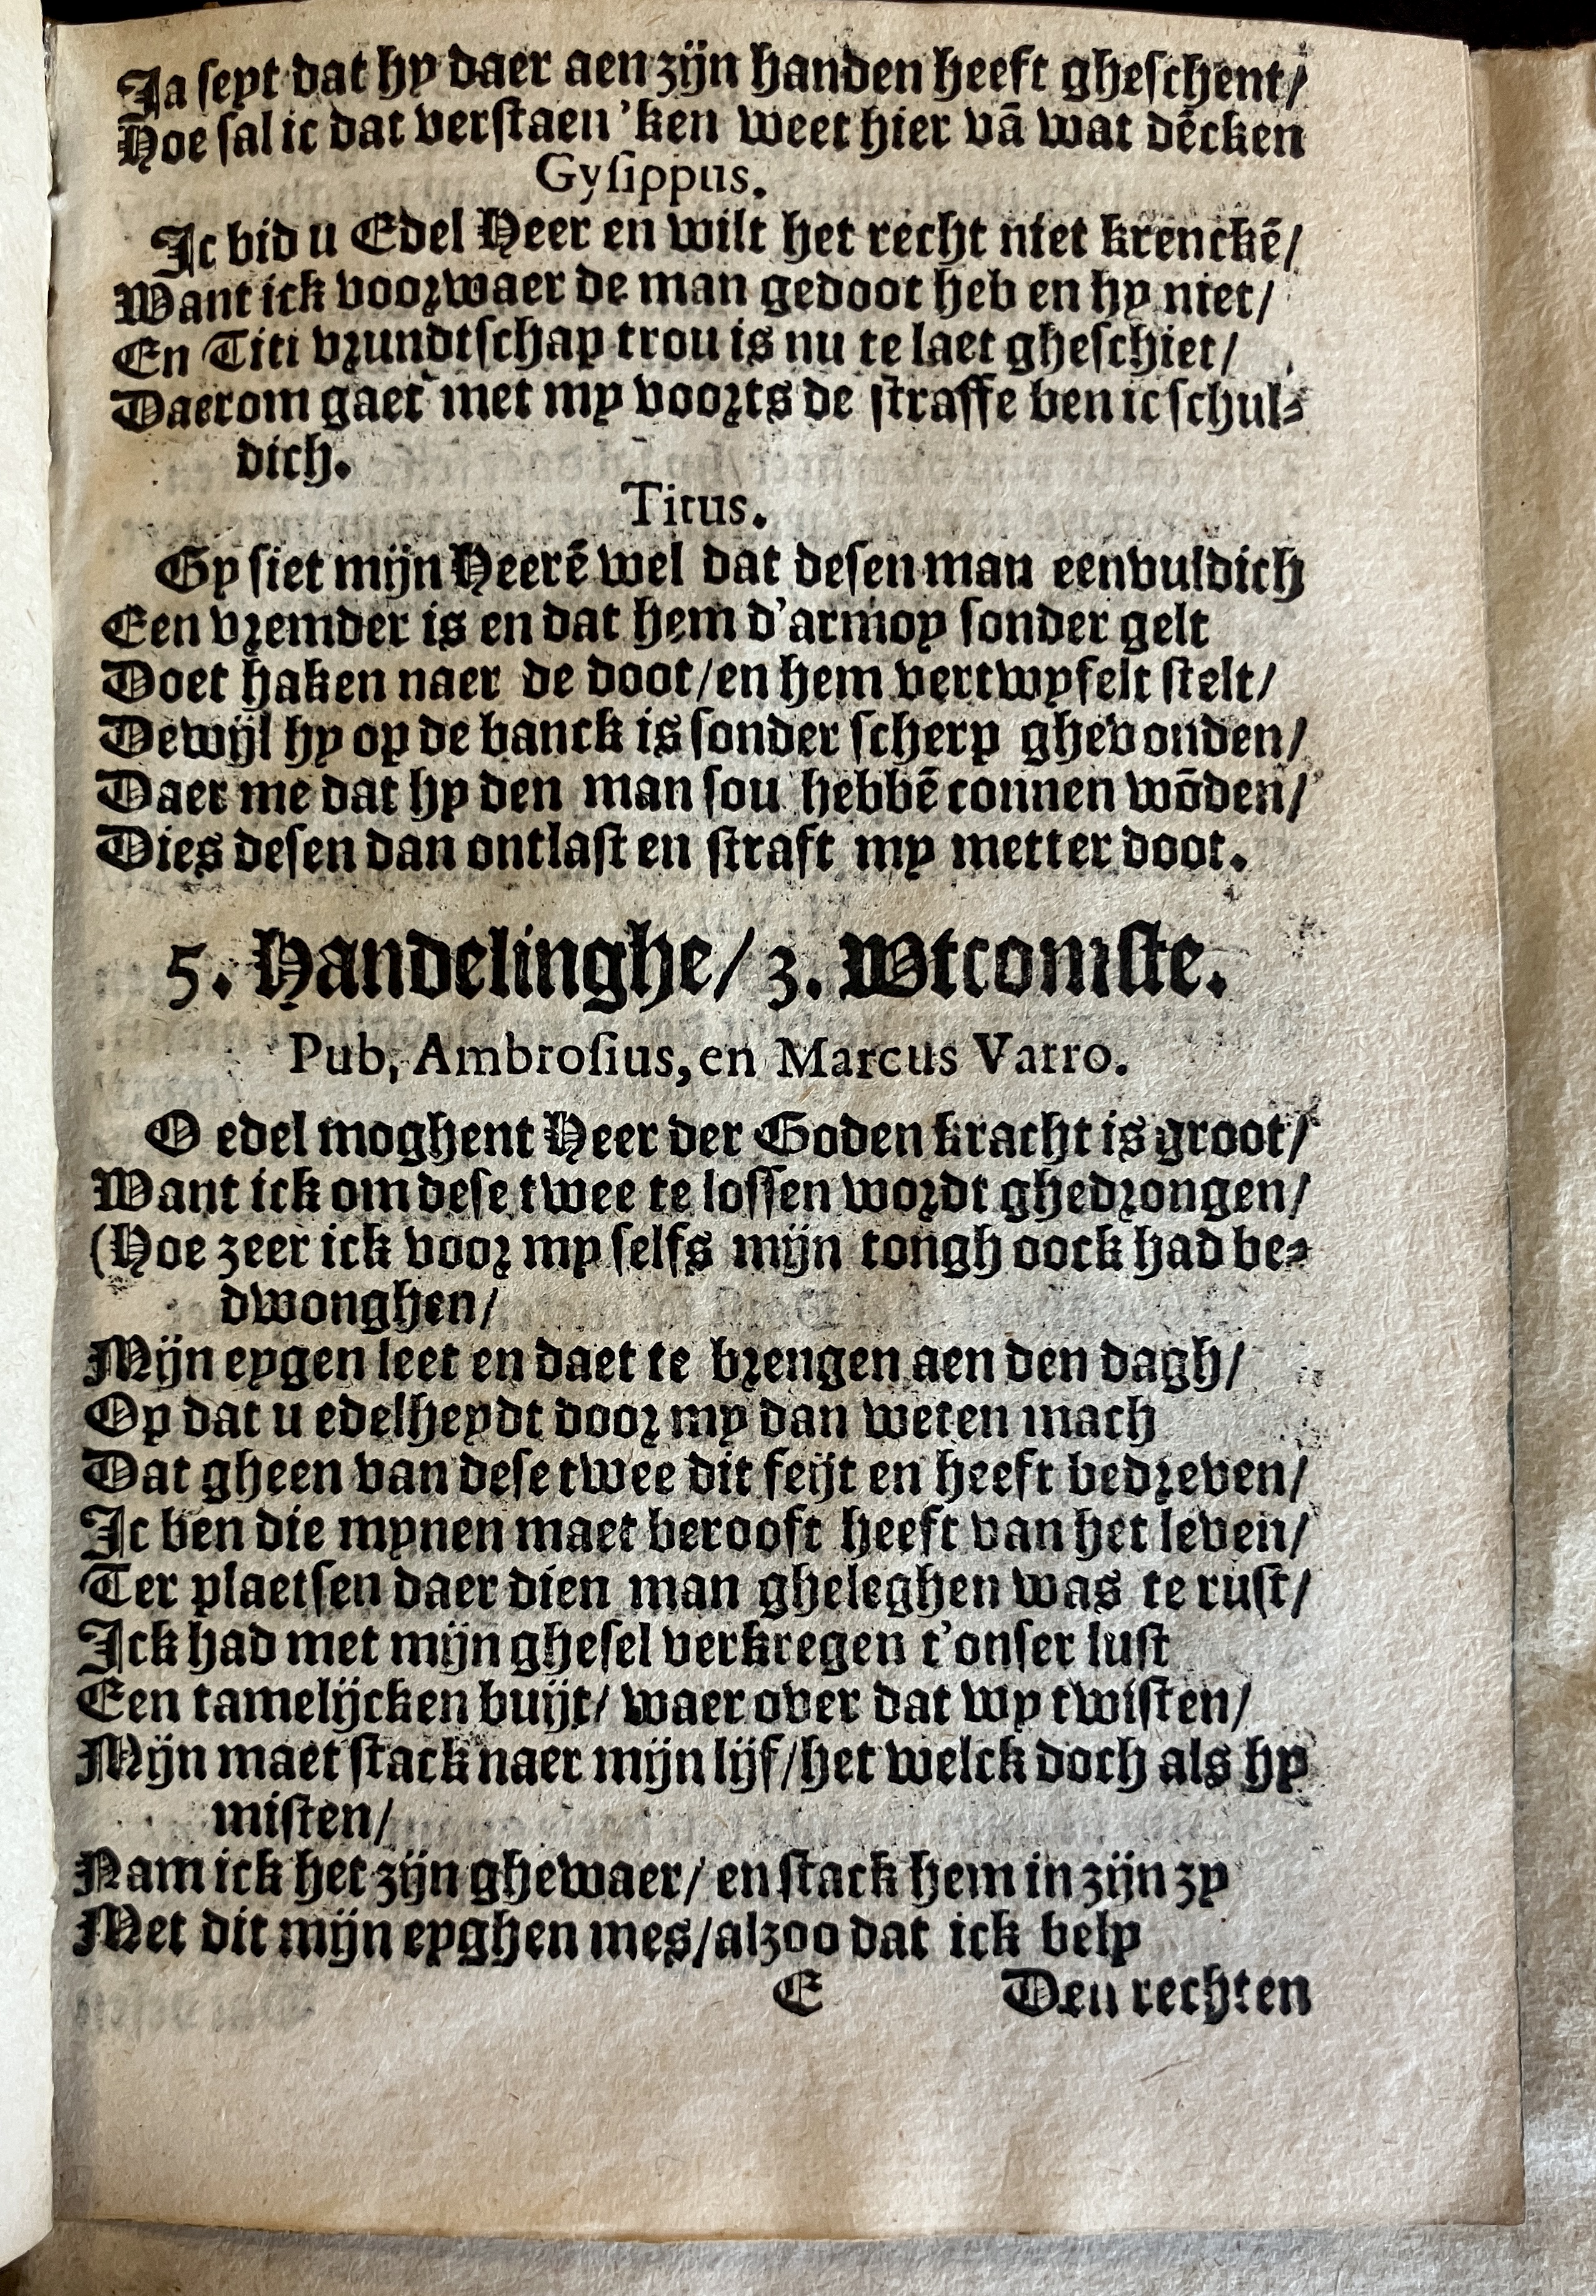 Ja seyt dat hy daer aen zijn handen heeft gheschent/
Hoe sal ic dat verstaen 'ken weet hier vã wat dẽcken
Gysippus.
Ic bid u Edel Heer en wilt het recht niet krenckẽ/
Want ick voorwaer de man gedoot heb en hy niet/
En Titi vrundtschap trou is nu te laet gheschiet/
Daerom gaet met my voorts de straffe ben ic schul-
dich.
Titus.
Gy siet mijn Heerẽ wel dat desen man eenvuldich
Een vremder is en dat hem d'armoy sonder gelt
Doet haken naer de doot/en hem vertwyfelt stelt/
Dewijl hy op de banck is sonder scherp ghevonden/
Daer me dat hy den man sou hebbẽ connen wõden/
Dies desen dan ontlast en straft my metter doot.
5. Handelinghe/ 3. Wtcomste.
Pub, Ambrosius, en Marcus Varro.
O edel moghent Heer der Goden kracht is groot/
Want ick om dese twee te lossen wordt ghedrongen/
(Hoe zeer ick voor my selfs mijn tongh oock had be-
dwonghen/
Mijn eygen leet en daet te brengen aen den dagh/
Op dat u edelheydt door my dan weten mach
Dat gheen van dese twee dit feijt en heeft bedreven/
Ic ben die mynen maet berooft heeft van het leven/
Ter plaetsen daer dien man gheleghen was te rust/
Ick had met mijn ghesel verkregen t'onser lust
Een tamelijcken buijt/ waer over dat wy twisten/
Mijn maet stack naer mijn lijf/het welck doch als hy
misten/
Nam ick het zijn ghewaer/ en stack hem in zijn zy
Met dit mijn eyghen mes/alzoo dat ick bely
E Den rechten